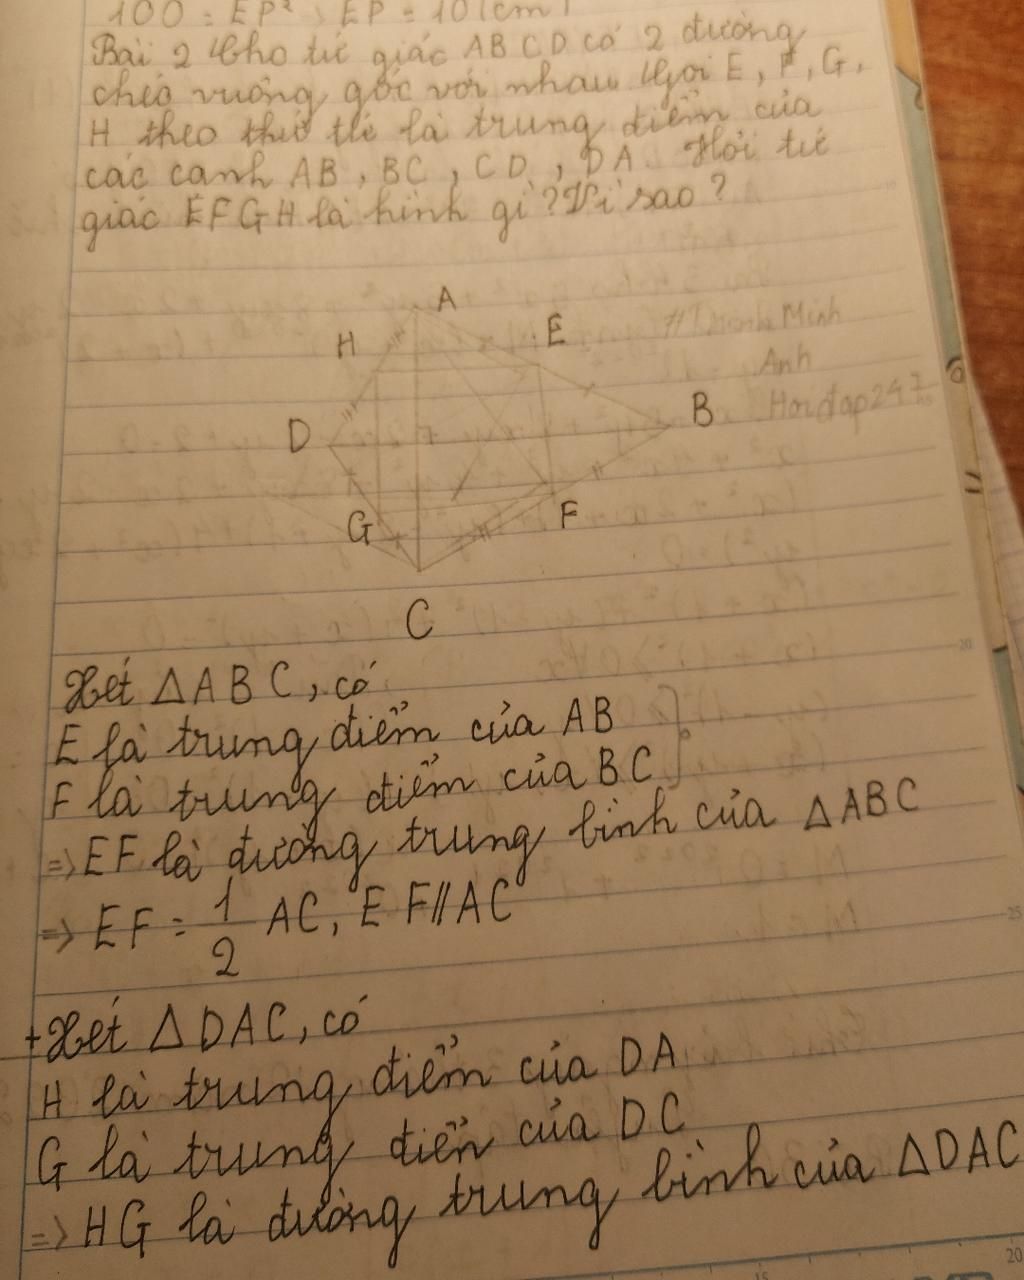 100 = EP² => EP = 10 (cm)
Bài 2 Cho tứ giác ABCD có 2 đường
chéo vuông góc với nhau Gọi E, F, G,
H theo thứ tứ là trung điểm của
các canh AB, BC, CD, DA. Hỏi tứ
giác EFGH là hình gì? Vì sao?
A
H
E
#Thanh Minh
Anh
D
B
Hoidap247
G
F
C
Xét ΔABC, có
E là trung điểm của AB
F là trung điểm của BC
=> EF là đường trung bình của ΔABC
=> EF = 1/2 AC, EF//AC
+Xét ΔDAC, có
H là trung điểm của DA
G là trung điển của DC
=> HG là đường trung bình của ΔDAC
20
25
15
20